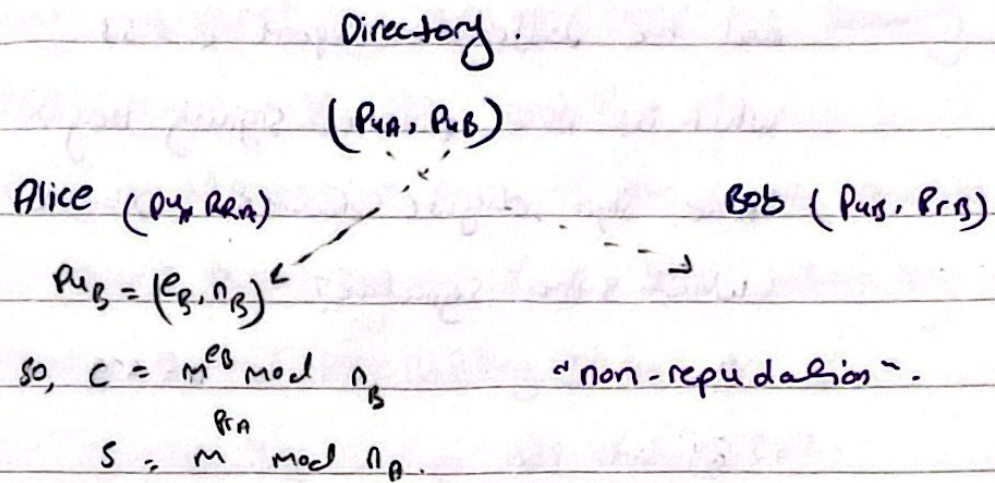 Directory.
(PuA, PuB)
Alice (PuA, PRA) Bob (PuB, PrB)
PuB = (eB, nB)
so, c = m^eB mod nB "non-repudation".
s = m^PrA mod nA.